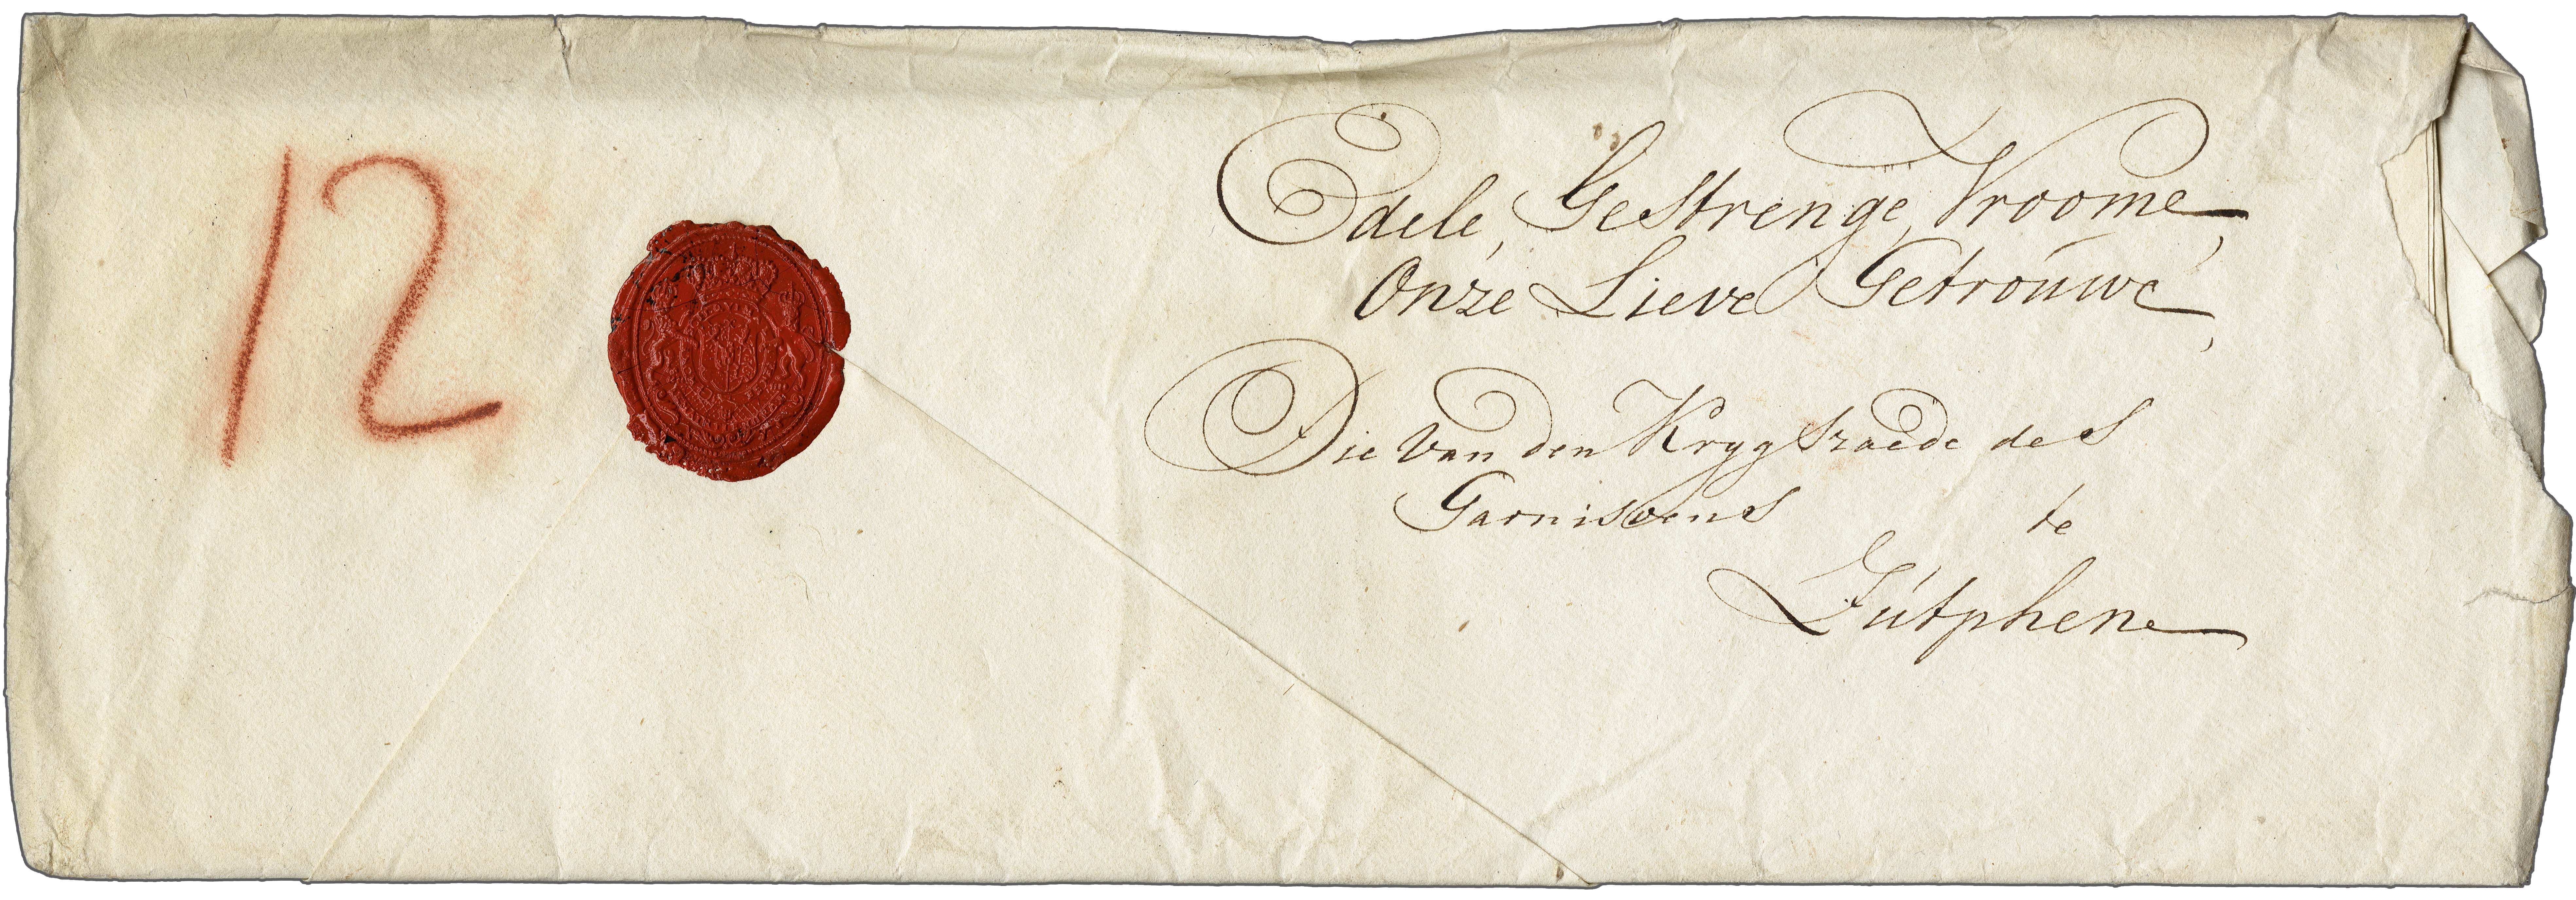 12
Edele, Gestrenge, Vroome,
Onze Lieve Getrouwe,
Die van den Krygsraede des
Garnisoens te
Zutphen